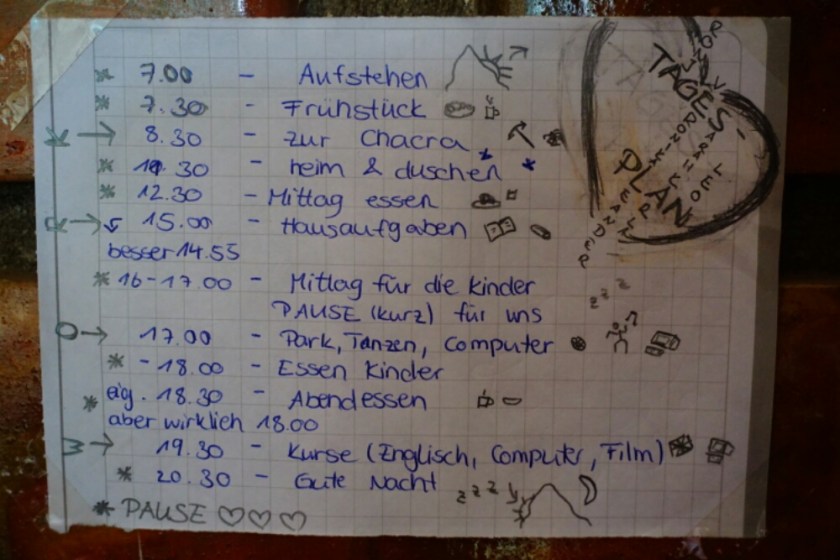 TAGES-
PLAN
7.00 - Aufstehen
7.30 - Frühstück
8.30 - zur Chacra
30 - heim & duschen
12.30 - Mittag essen
15.00 - Hausaufgaben
besser 14.55
16-17.00 - Mittag für die Kinder
PAUSE (kurz) für uns
17.00 - Park, Tanzen, Computer
-18.00 - Essen Kinder
eig. 18.30 - Abendessen
aber wirklich 18.00
19.30 - Kurse (Englisch, Computer, Film)
20.30 - Gute Nacht
zzz
* PAUSE ♡♡♡